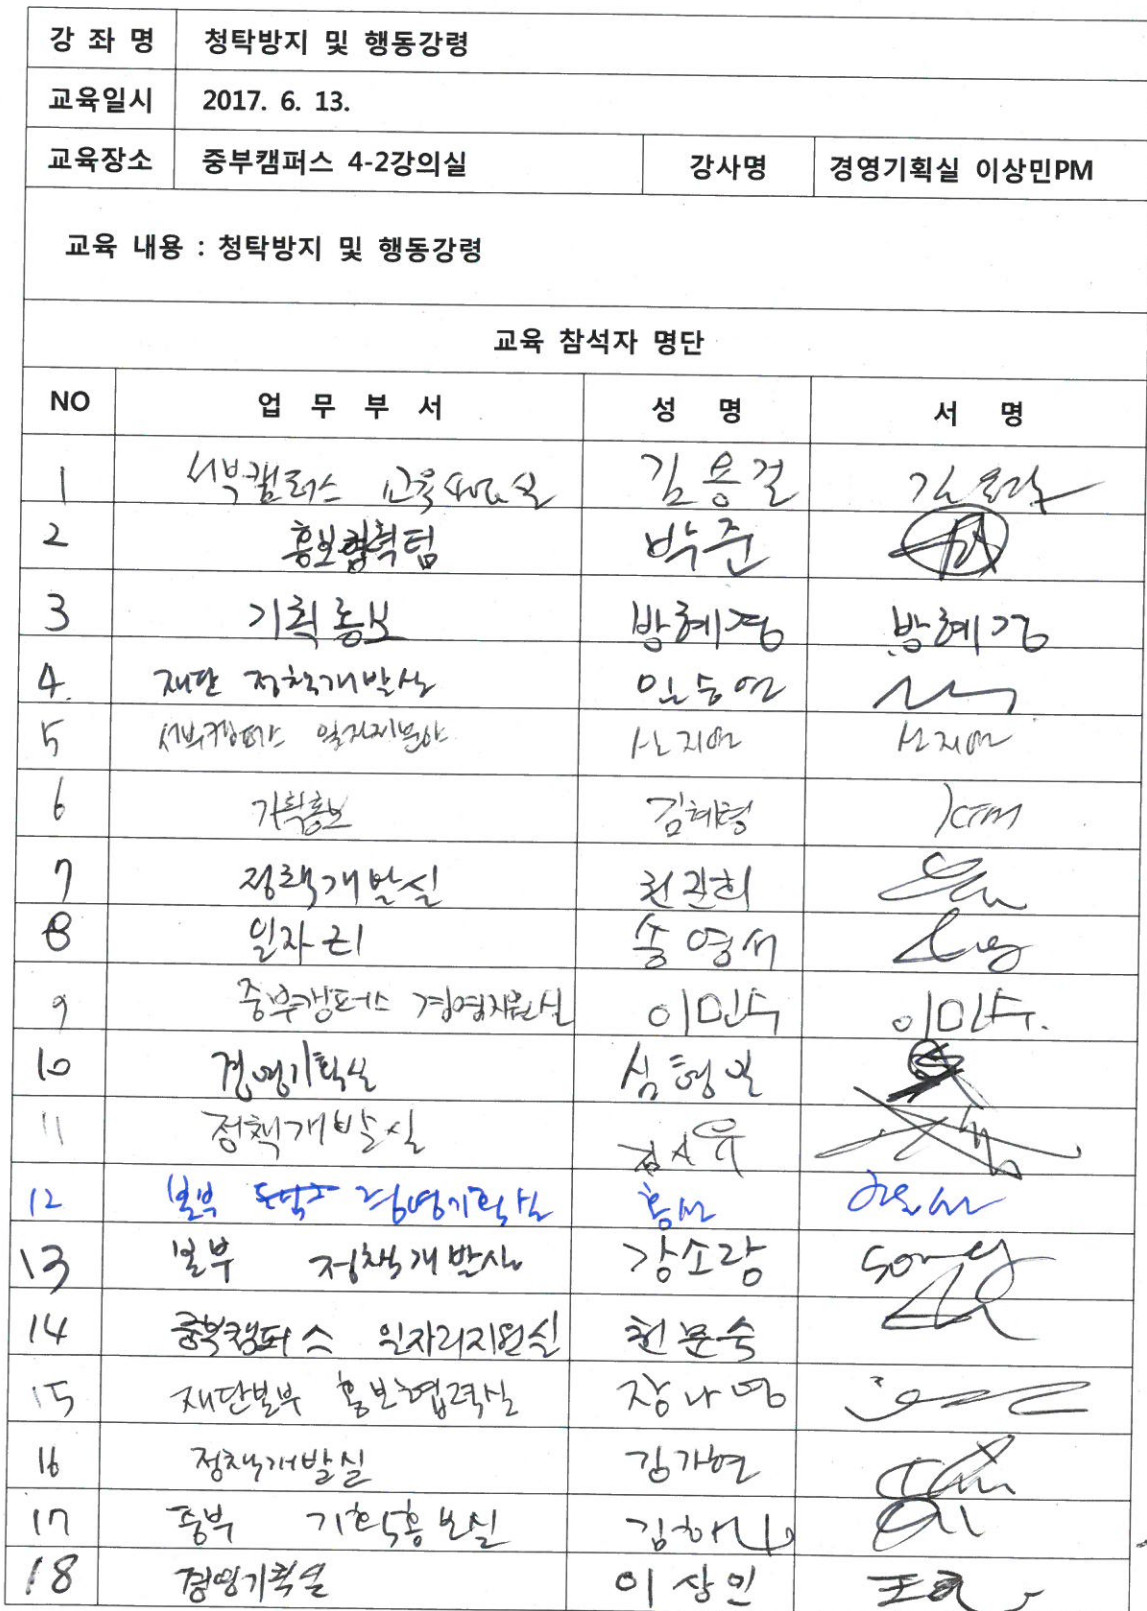 강 좌 명 청탁방지 및 행동강령
교육일시 2017. 6. 13.
교육장소 중부캠퍼스 4-2강의실 강사명 경영기획실 이상민PM
교육 내용 : 청탁방지 및 행동강령
교육 참석자 명단
NO 업 무 부 서 성 명 서 명
1 서부캠퍼스 김용걸
2 홍보협력팀 박준
3 기획홍보 방혜경 방혜경
4. 재단 정책개발실 임승연
5 서부캠퍼스 신지연 신지연
6 기획홍보 김혜령
7 정책개발실 천관희
8 일자리 송영서
9 중부캠퍼스 경영지원실 이민수 이민수.
10 경영기획실 심형보
11 정책개발실
12 본부 경영기획실 홍산
13 본부 정책개발실 강소랑
14 중부캠퍼스 일자리지원실 천문숙
15 재단본부 홍보협력실 장나영
16 정책개발실 김가현
17 중부 기획홍보실
18 경영기획실 이상민